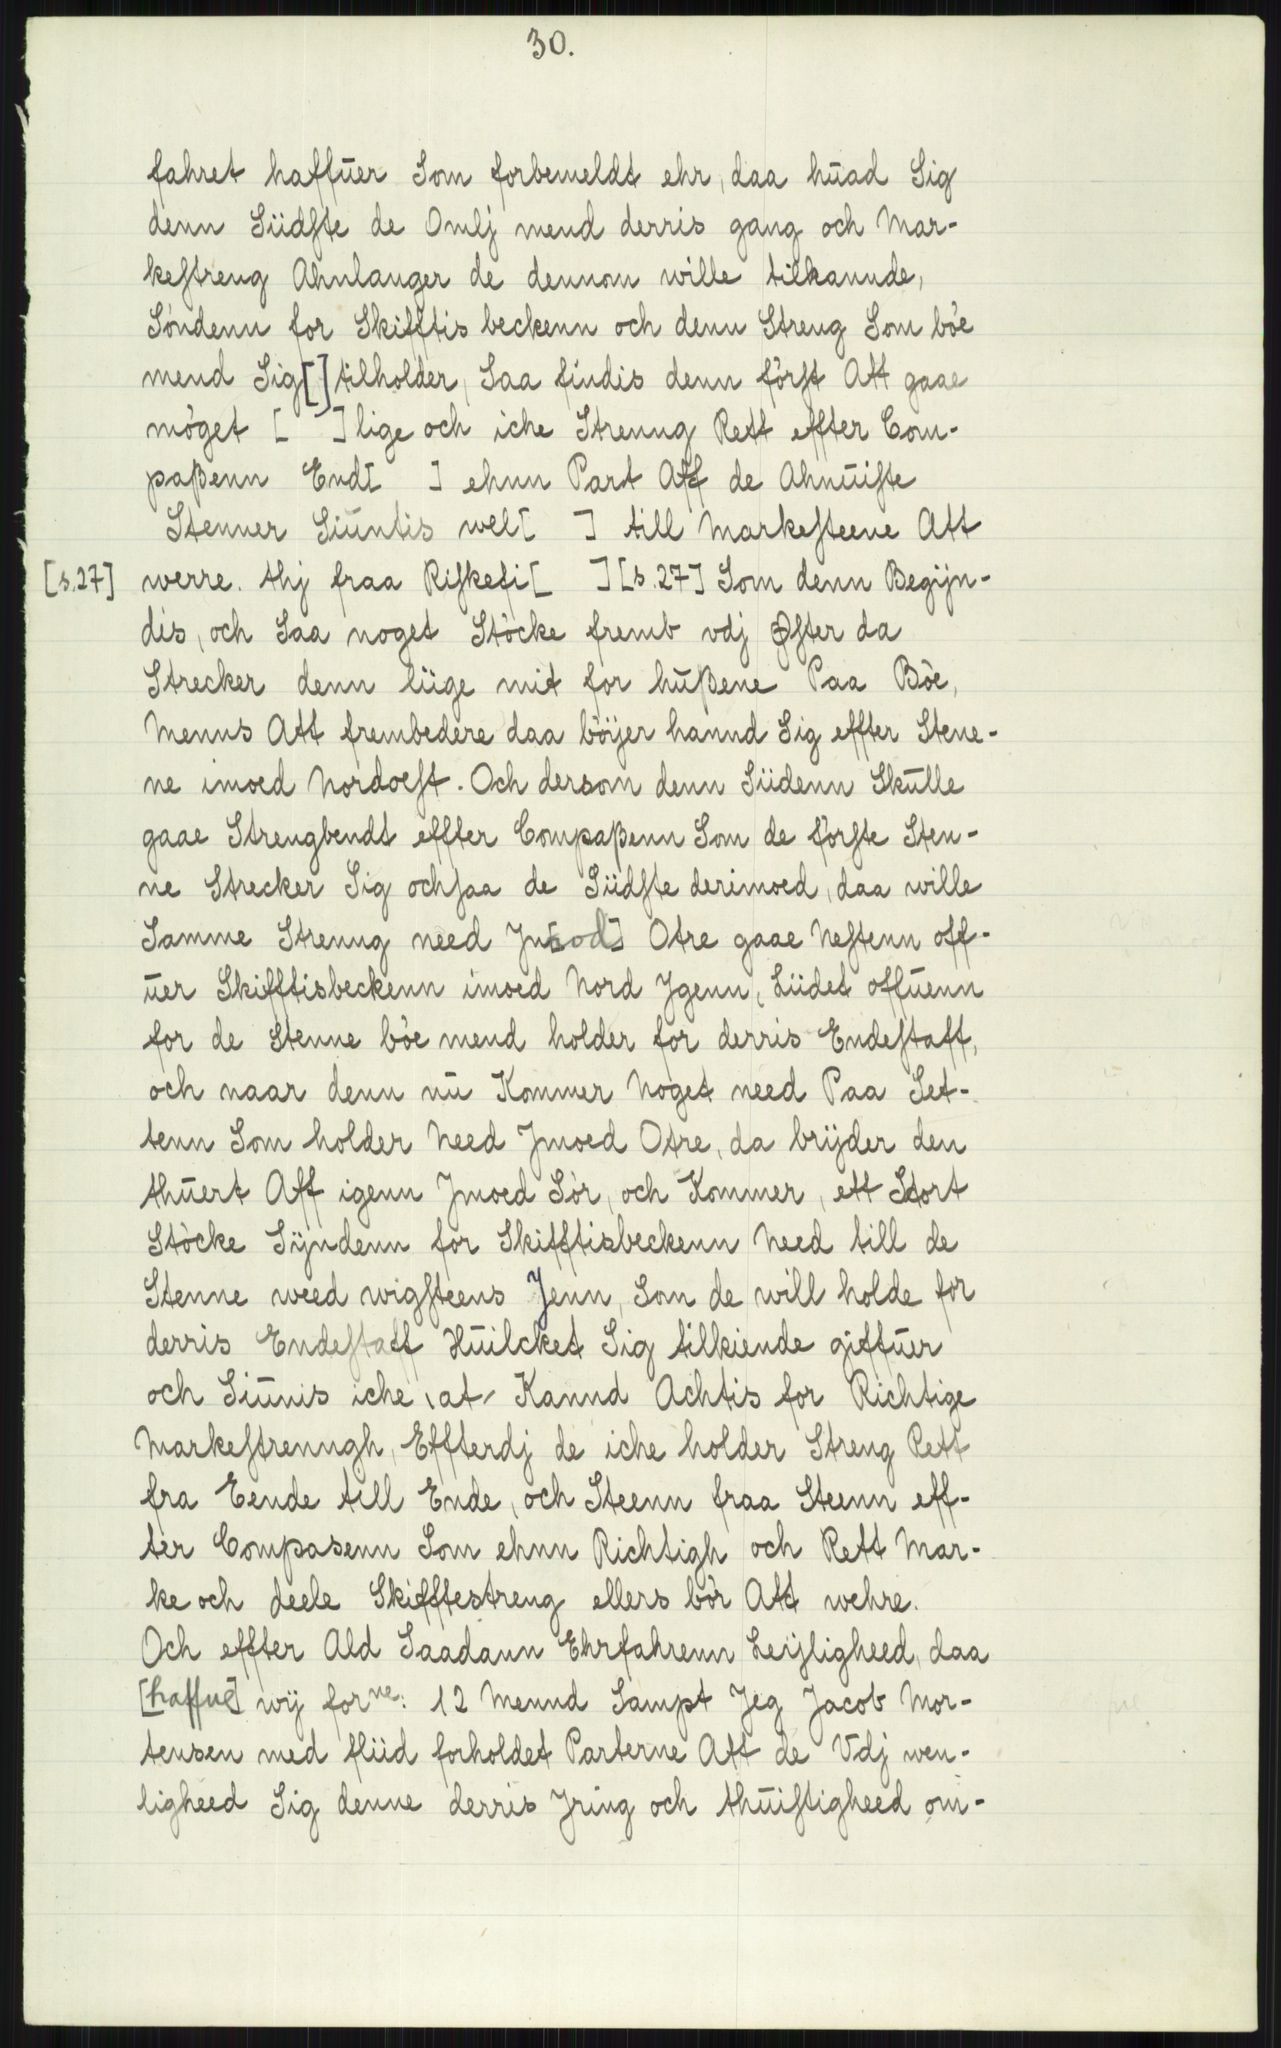 30.
fahret haffūer Som forbemeldt ehr, daa hūad Sig
denn Südste de Omlj mend derris gang och Mar-
kestreng Ahnlanger de dennom wille tilkannde,
Söndenn for Skifftis beckenn och denn Streng Som böe
mend Sig[ ]tilholder, Saa findis denn först Att gaae
möget [ ]lige och iche Strenng Rett effter Com-
paßenn End[ ] ehnn Part Aff de Ahnūiste
Stenner Siūntis wel[ ] till Markesteene Att
[s.27] werre. thj fraa Risketi[ ] [s.27] Som denn Begÿn-
dis, och Saa noget Stöcke fremb vdj Øster da
Strecker denn lüge mit for hūßene Paa Böe,
Menns Att frembedere daa böÿer hannd Sig effter Stene-
ne imoed Nordoest. Och dersom denn Südenn Skūlle
gaae Strengbendt effter Compaßenn Som de förste Sten-
ne Strecker Sig ochsaa de Südste derimoed, daa wille
Samme Strenng need Jm[od] Otre gaae Nestenn off-
ūer Skifftisbeckenn imoed Nord Jgenn, Lüdet offūenn
for de Stenne böe mend holder for derris Endestaff,
och naar denn nū Kommer Noget need Paa Let-
tenn Som holder Need Jmoed Otre, da brÿder den
thūert Aff igenn Jmoed Sör, och Kommer, ett Stort
Stöcke Sÿndenn for Skifftisbeckenn Need till de
Stenne weed wigsteens Jenn, Som de will holde for
derris Endestaff Hūilcket Sig tilkiende giffūer
och Siūnis iche, at, Kannd Achtis for Richtige
Markestrenngh, Effterdj de iche holder Streng Rett
fra Eende till Ende, och Steenn fraa Steenn eff-
ter Compasenn Som ehnn Richtigh och Rett Mar-
ke och deele Skifftestreng ellers bör Att wehre.
Och effter Ald Saadann Ehrfahrenn Leÿligheed, daa
[haffue] wÿ forne: 12 Mennd Sampt Jeg Jacob Mor-
tensen med fliid forholdet Parterne Att de Vdj wen-
ligheed Sig denne derris Jring och thūistigheed om-